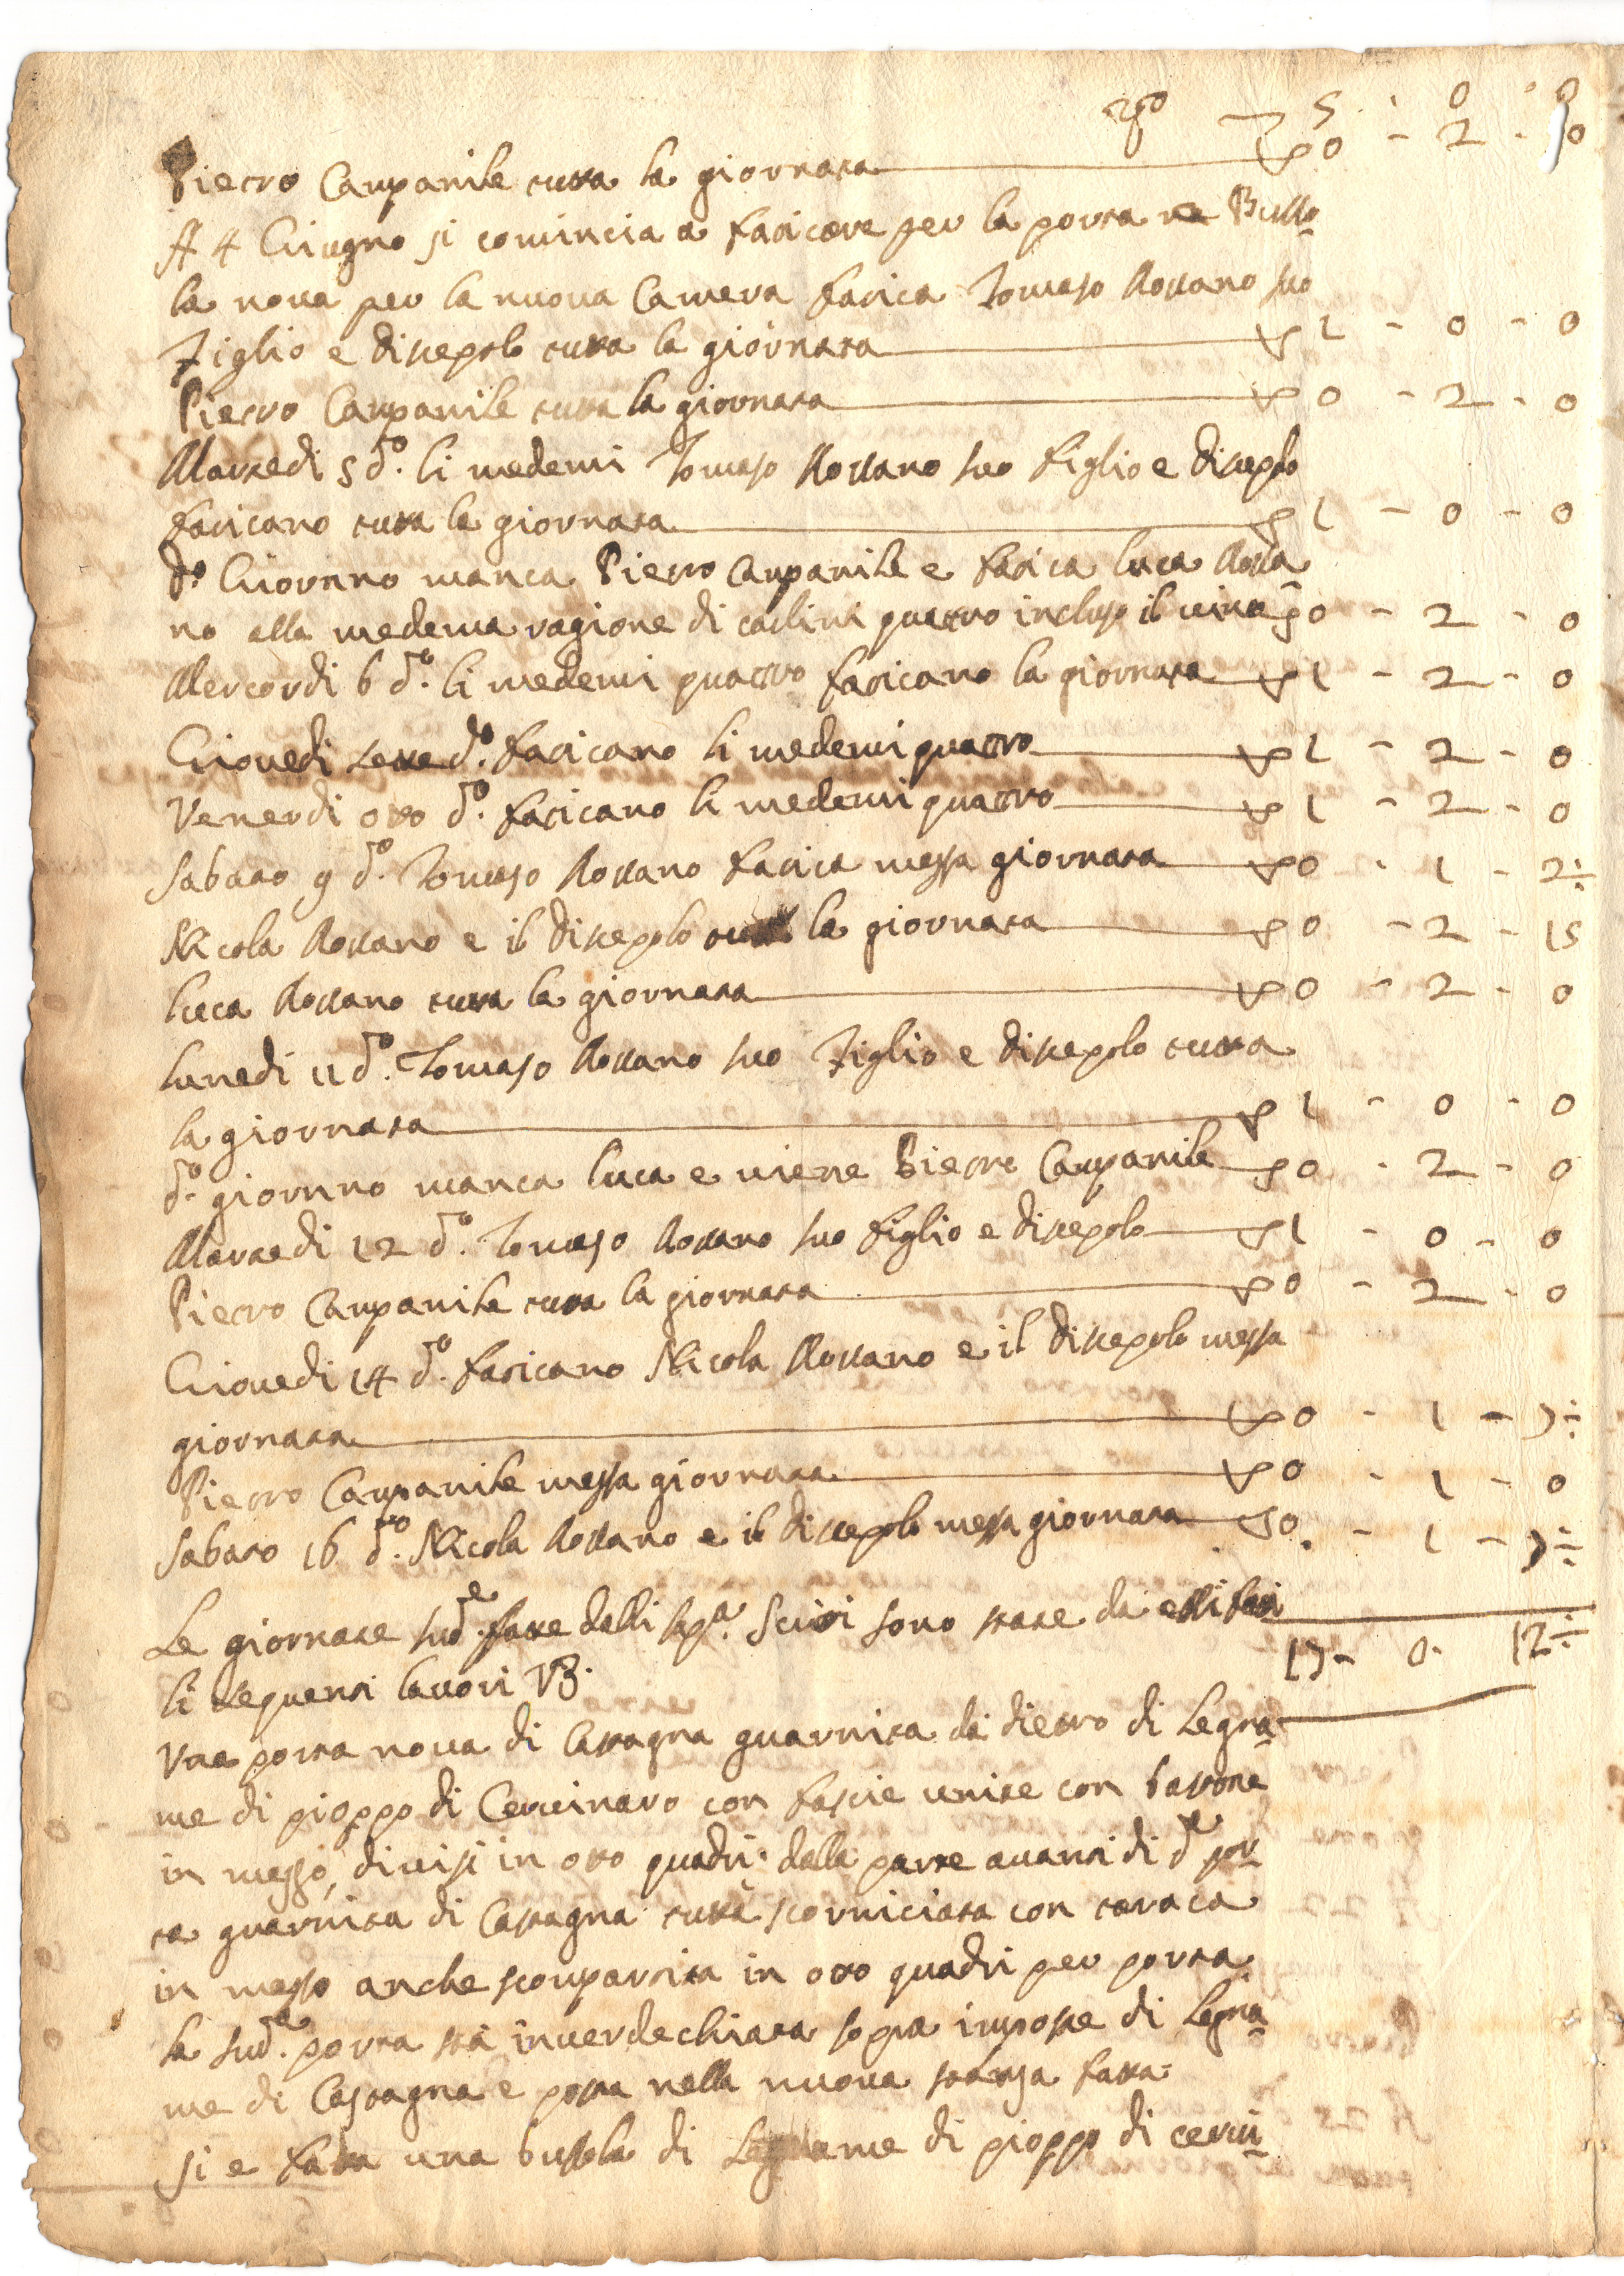 5 . 0 . 0
Pietro Campanile tutta la giornata 0 - 2 - 0
A 4 Giugno si comincia a faticare per la porta e Busso=
la nova per la nuova Camera fatica Tomaso Rossano suo
Figlio e discepolo tutta la giornata 1 - 0 - 0
Pietro Campanile tutta la giornata 0 - 2 - 0
Martedi 5 d.o li medemi Tomaso Rossano suo figlio e discepolo
faticano tutta la giornata 1 - 0 - 0
d.o Giornno manca Pietro Campanile e fatica luca Rossa=
no alla medema ragione di carlini quattro incluso il vino 0 - 2 - 0
Mercordi 6 d.o li medemi quattro faticano la giornata 1 - 2 - 0
Giovedi sette d.o faticano li medemi quattro 1 - 2 - 0
Venerdi otto d.o faticano li medemi quattro 1 - 2 - 0
Sabato 9 d.o Tomaso Rossano fatica messa giornata 0 - 1 - 2÷
Nicola Rossano e il discepolo tutta la giornata 0 - 2 - 15
luca Rossano tutta la giornata 0 - 2 - 0
lunedi 11 d.o Tomaso Rossano suo Figlio e discepolo tutta
la giornata 1 - 0 - 0
d.o giornno manca luca e viene Pietro Campanile 0 - 2 - 0
Martedi 12 d.o Tomaso Rossano suo figlio e discepolo 1 - 0 - 0
Pietro Campanile tutta la giornata 0 - 2 - 0
Giovedi 14 d.o faticano Nicola Rossano e il discepolo messa
giornata 0 - 1 - 7÷
Pietro Campanile messa giornata 0 - 1 - 0
Sabato 16 d.o Nicola Rossano e il discepolo messa giornata 0 - 1 - 7÷
Le giornate sud.e fatte dalli sop.a scritti sono state da essi fatti
17 - 0 - 12÷
li sequenti lavori
Una porta nova di Castagna guarnita di dietro di Legna=
me di pioppo di Cervinaro con fascie unite con bastone
in messo, divisi in otto quadri: dalla parte avanti di d.a por=
ta guarnita di Castagna tutta scorniciata con
in messo anche scompartita in otto quadri per porta
la sud.a porta stà inverdechiata sopra imposte di Legna=
me di Castagna e posta nella nuova stansa fatta:
si e fatta una bussola di Legname di pioppo di cervi=